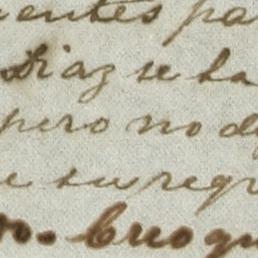 entes pa
Diaz se ha
pero no d
e su regr